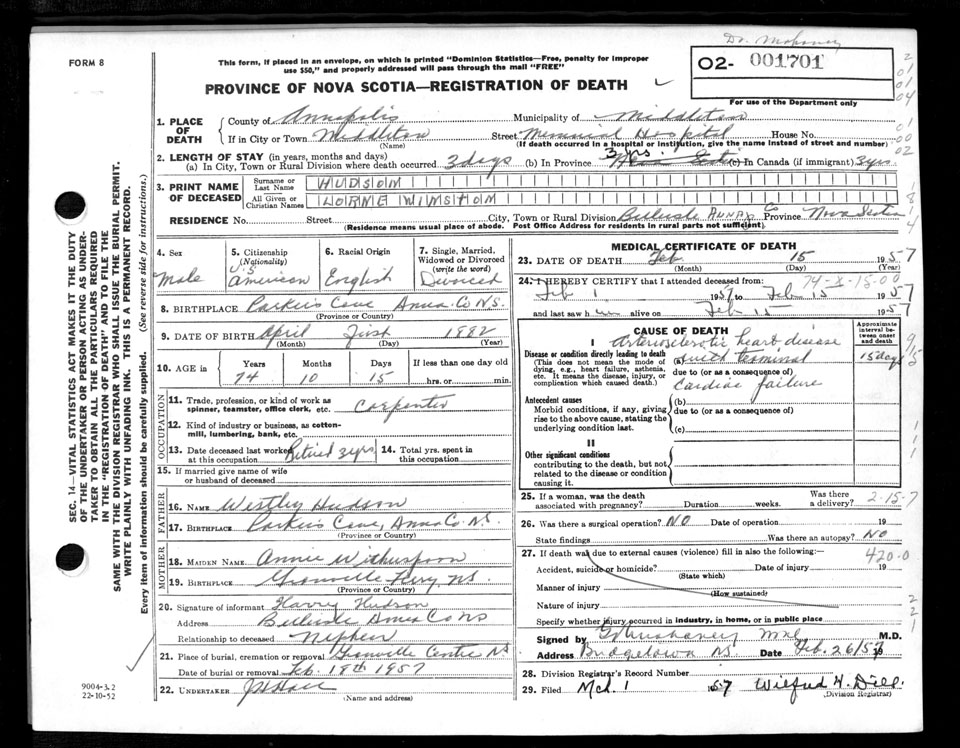 Dr. Mahaney
FORM 8
This form, if placed in an envelope, on which is printed "Dominion Statistics—Free, penalty for improper
use $50," and properly addressed will pass through the mail "FREE"
02- 001701
For use of the Department only
PROVINCE OF NOVA SCOTIA—REGISTRATION OF DEATH
SEC. 14—VITAL STATISTICS ACT MAKES IT THE DUTY
OF THE UNDERTAKER OR PERSON ACTING AS UNDER-
TAKER TO OBTAIN ALL THE PARTICULARS REQUIRED
IN THE "REGISTRATION OF DEATH" AND TO FILE THE
SAME WITH THE DIVISION REGISTRAR WHO SHALL ISSUE THE BURIAL PERMIT.
WRITE PLAINLY WITH UNFADING INK. THIS IS A PERMANENT RECORD.
Every item of information should be carefully supplied. (See reverse side for instructions.)
1. PLACE OF DEATH
County of Annapolis Municipality of Middleton
If in City or Town Middleton Street Memorial Hospital House No.
(Name) (If death occurred in a hospital or institution, give the name instead of street and number)
2. LENGTH OF STAY (in years, months and days)
(a) In City, Town or Rural Division where death occurred 3 days (b) In Province 3 yrs. (c) In Canada (if immigrant) 3 yrs.
3. PRINT NAME OF DECEASED
Surname or Last Name HUDSON
All Given or Christian Names LORNE WINSTON
RESIDENCE No. Street City, Town or Rural Division Belleisle Annap. Co Province Nova Scotia
(Residence means usual place of abode. Post Office Address for residents in rural parts not sufficient).
4. Sex Male
5. Citizenship (Nationality) U.S American
6. Racial Origin English
7. Single, Married, Widowed or Divorced (write the word) Divorced
8. BIRTHPLACE Parkers Cove Anna. Co N.S.
(Province or Country)
9. DATE OF BIRTH April First 1882
(Month) (Day) (Year)
10. AGE in Years 74 Months 10 Days 15 If less than one day old
hrs. or min.
OCCUPATION
11. Trade, profession, or kind of work as
spinner, teamster, office clerk, etc. Carpenter
12. Kind of industry or business, as cotton-
mill, lumbering, bank, etc.
13. Date deceased last worked at this occupation Retired 3 yrs 14. Total yrs. spent in this occupation
15. If married give name of wife
or husband of deceased
FATHER
16. NAME Westley Hudson
17. BIRTHPLACE Parkers Cove, Anna Co. N.S.
(Province or Country)
MOTHER
18. MAIDEN NAME Annie Witherspoon
19. BIRTHPLACE Granville Ferry, N.S.
(Province or Country)
20. Signature of informant Harry Hudson
Address Belleisle Anna Co NS
Relationship to deceased Nephew
21. Place of burial, cremation or removal Granville Centre NS
Date of burial or removal Feb. 18th 1957
22. UNDERTAKER
(Name and address)
9004-3.2
22-10-52
MEDICAL CERTIFICATE OF DEATH
23. DATE OF DEATH Feb. 15 1957
(Month) (Day) (Year)
74-X-15-00
24. I HEREBY CERTIFY that I attended deceased from:
Feb 1 1957 to Feb 15 1957
and last saw h im alive on Feb 15 1957
CAUSE OF DEATH
Approximate interval between onset and death
I
Disease or condition directly leading to death
(This does not mean the mode of
dying, e.g., heart failure, asthenia,
etc. It means the disease, injury, or
complication which caused death.)
Arteriosclerotic heart disease
(a) with terminal 15 days
due to (or as a consequence of)
cardiac failure
Antecedent causes
Morbid conditions, if any, giving
rise to the above cause, stating the
underlying condition last.
(b)
due to (or as a consequence of)
(c)
II
Other significant conditions
contributing to the death, but not
related to the disease or condition
causing it.
25. If a woman, was the death associated with pregnancy? Duration weeks. Was there a delivery?
2-15-7
26. Was there surgical operation? NO Date of operation 19
State findings Was there an autopsy? No
27. If death was due to external causes (violence) fill in also the following:— 420-0
Accident, suicide or homicide? Date of injury 19
(State which)
Manner of injury
(How sustained)
Nature of injury
Specify whether injury occurred in industry, in home, or in public place
Signed by M.D.
Address Bridgetown NS Date Feb. 26/57
28. Division Registrar's Record Number
29. Filed Mch. 1 57 Wilfred H. Dill.
(Division Registrar)